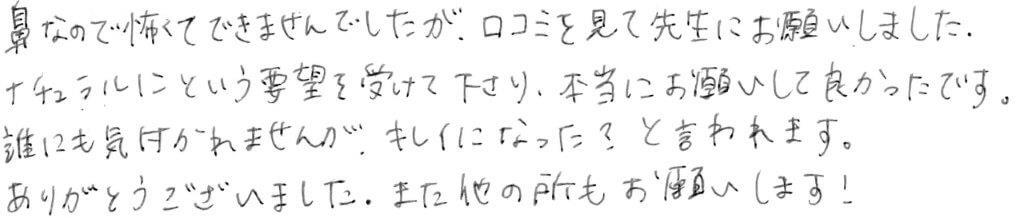 鼻なので怖くてできませんでしたが、口コミを見て先生にお願いしました.
ナチュラルにという要望を受けて下さり、本当にお願いして良かったです。
誰にも気付かれませんが、キレイになった？と言われます。
ありがとうございました. また他の所もお願いします!